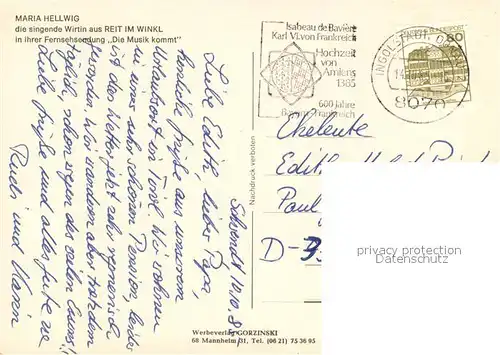 MARIA HELLWIG
die singende Wirtin aus REIT IM WINKL
in ihrer Fernsehsendung „Die Musik kommt"
Isabeau de Bavière
Karl VI. von Frankreich
Hochzeit
von
Amiens
1385
600 Jahre
Bayern-Frankreich
INGOLSTADT, DONAU
8070
80
Schwendt 10.10.8
Liebe Edith, lieber Papa,
herzliche Grüße aus unserem
Kurzurlaub in Tirol. Wir wohnen
in einer sehr schönen Pension, leider
ist das Wetter jetzt sehr regnerisch
geworden. Wir wandern aber trotzdem
täglich, schon wegen des vielen Essens!
Liebe Grüße und alles Gute von
Rudi und Karin
Nachdruck verboten
Eheleute
Edith
Paul
D-3
privacy protection
Werbeverlag GORZINSKI
68 Mannheim 31, Tel. (06 21) 75 36 95